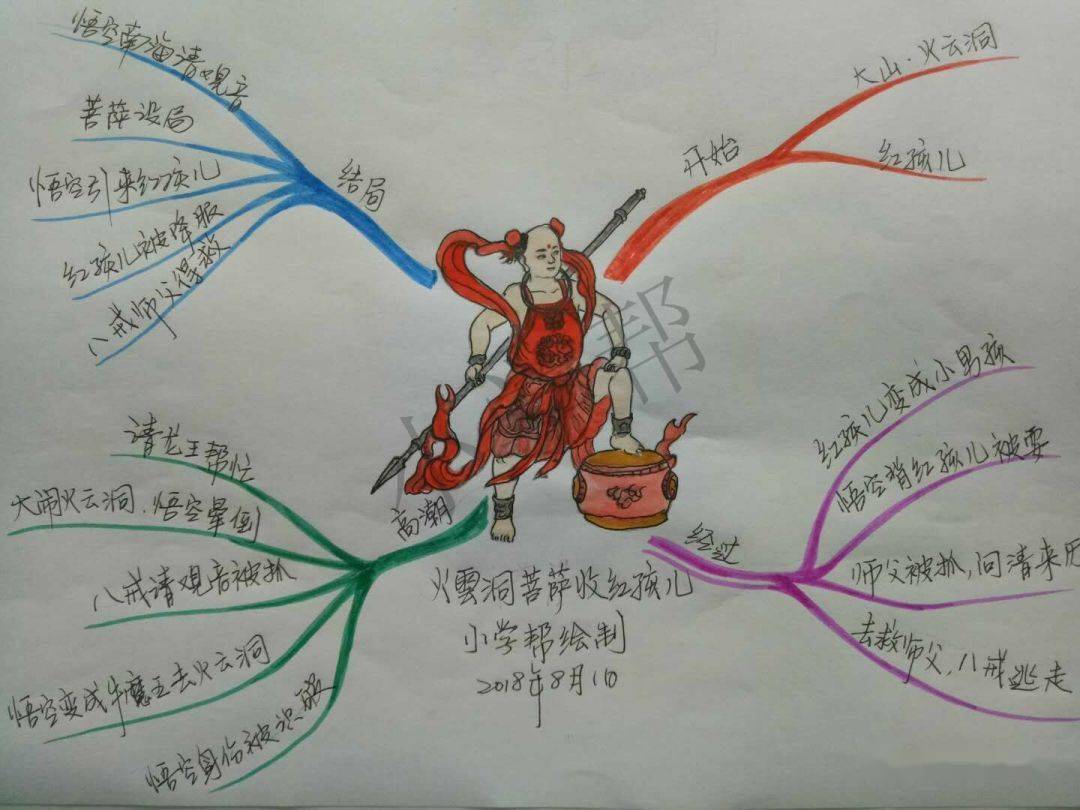 开始
大山·火云洞
红孩儿
经过
红孩儿变成小男孩
悟空背红孩儿被耍
师父被抓,问清来历
去救师父,八戒逃走
高潮
请龙王帮忙
大闹火云洞、悟空晕倒
八戒请观音被抓
悟空变成牛魔王去火云洞
悟空身份被识破
结局
悟空南海请观音
菩萨设局
悟空引来红孩儿
红孩儿被降服
八戒师父得救
火雲洞菩萨收红孩儿
小学帮绘制
2018年8月1日
小学帮